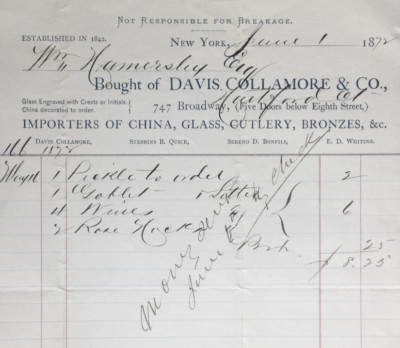 NOT RESPONSIBLE FOR BREAKAGE.
ESTABLISHED IN 1842.
NEW YORK, June 1 1872
Wm Hamersley Esq
Bought of DAVIS COLLAMORE & CO.,
Glass Engraved with Crests or Initials.
China decorated to order.
747 Broadway, (Five Doors below Eighth Street,)
Hartford Ct
IMPORTERS OF CHINA, GLASS, CUTLERY, BRONZES, &c.
DAVIS COLLAMORE, STEBBINS B. QUICK, SERENO D. BONFILS, E. D. WHITING.
166 1872
1 Pickle to order 2
1 Goblet
4 Wines 6
2 Rose Hock
25
$ 8.25
Money sent by check
June